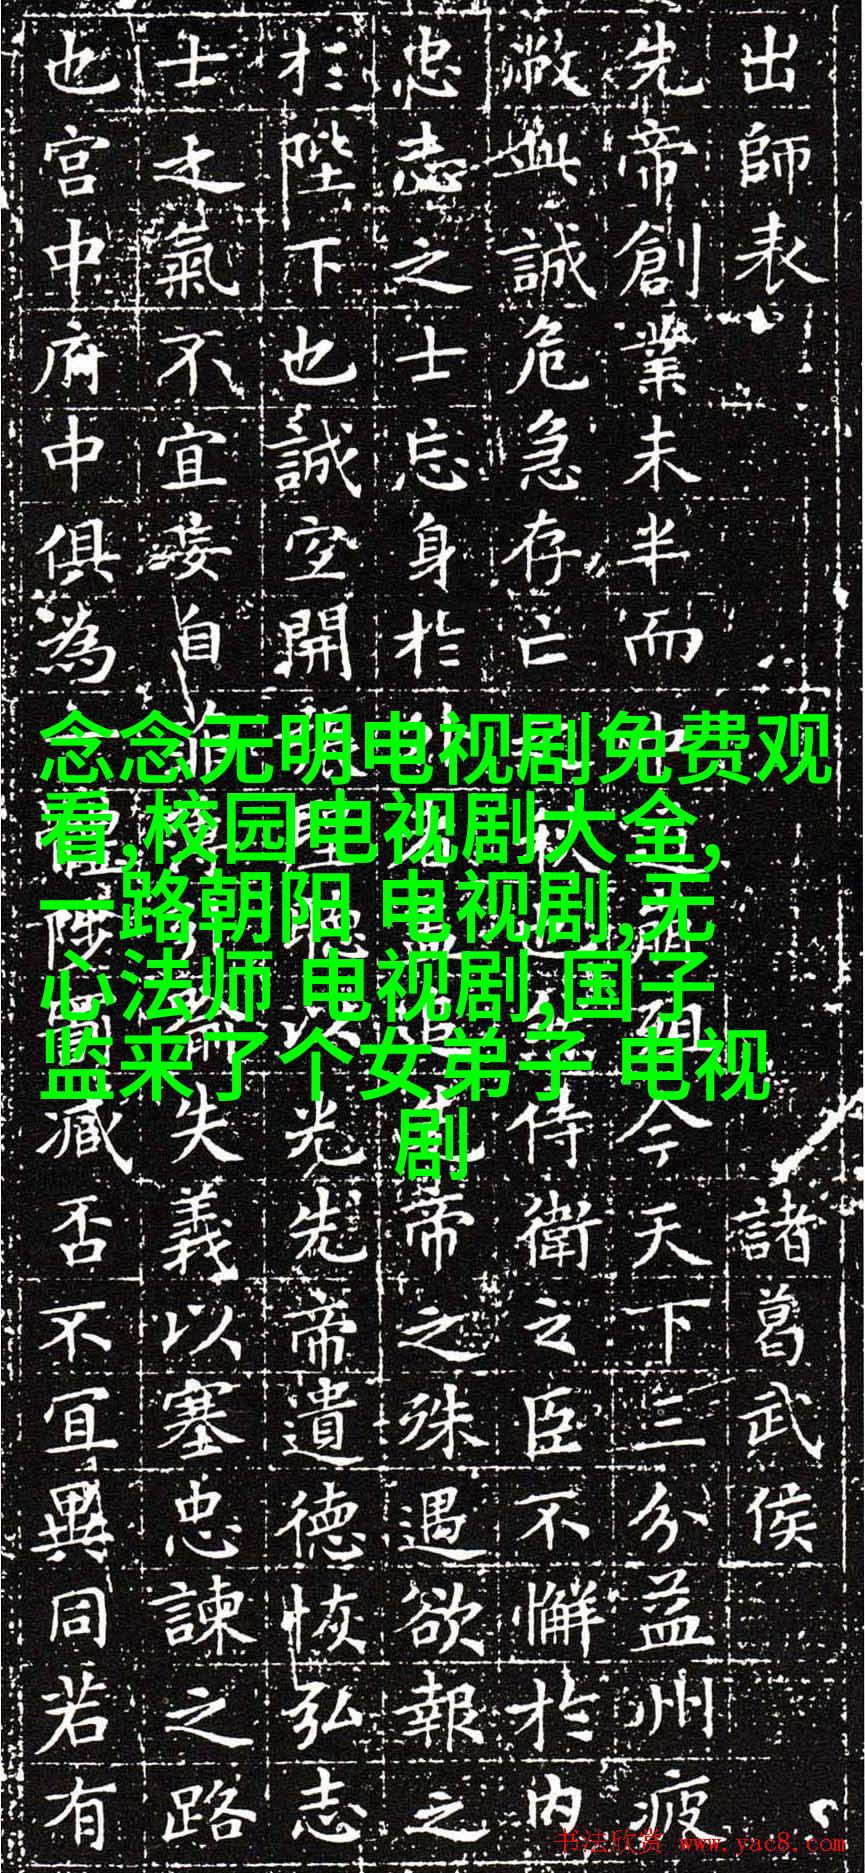 出師表 諸葛武侯
先帝創業未半而 殂今天下三分益州疲
敝此誠危急存亡 秋也 侍衛之臣不懈於內
忠志之士忘身於外 蓋追先帝之殊遇欲報之
於陛下也誠宜開張 聽以光先帝遺德恢弘志
士之氣不宜妄自 失義以塞忠諫之路
也宮中府中俱為一體陟罰臧否不宜異同若有
念念无明电视剧免费观
看,校园电视剧大全,
一路朝阳 电视剧,无
心法师 电视剧,国子
监来了个女弟子 电视
剧
书法欣赏 www.yac8.com